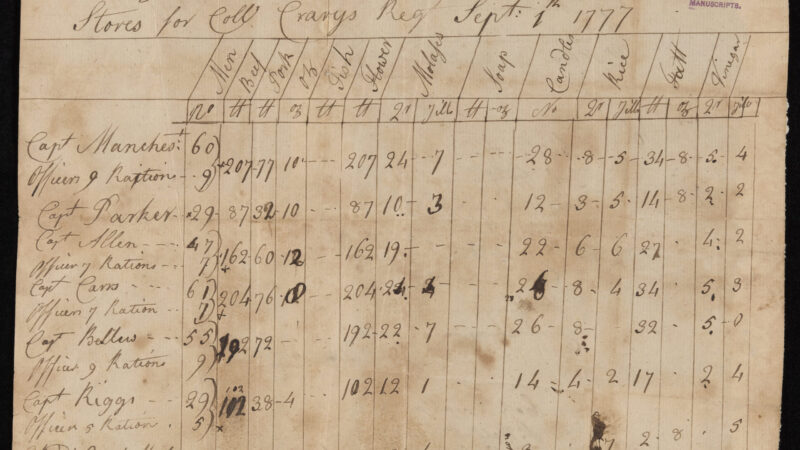 MANUSCRIPTS.
Stores for Coll Crarys Regt Sept: 1th 1777
Men Beef Pork oz Fish Flower Molases Soap Candles Rice Salt Vinegar
No ℔ ℔ oz ℔ ℔ Qt Jills ℔ oz No Qt Jills ℔ oz Qt Jills
Capt Manchest 60
207 77 10 207 24 7 28 8 5 34 8 5 4
Officers 9 Rations 9
Capt Parker 29 87 32 10 87 10 3 12 3 5 14 8 2 2
Capt Allen 47
162 60 12 162 19 22 6 6 27 4 2
Officer 7 Rations 7
Capt Carrs 61 204 76 204 8 4 34 5 3
Officers 7 Ration 7
Capt 55 192 72 192 22 7 26 8 32 5 0
Officer 9 Rations 9
Capt Riggs 29 102 38 4 102 12 1 14 4 2 17 2 4
Officers 5 Ration 5
2 8 5